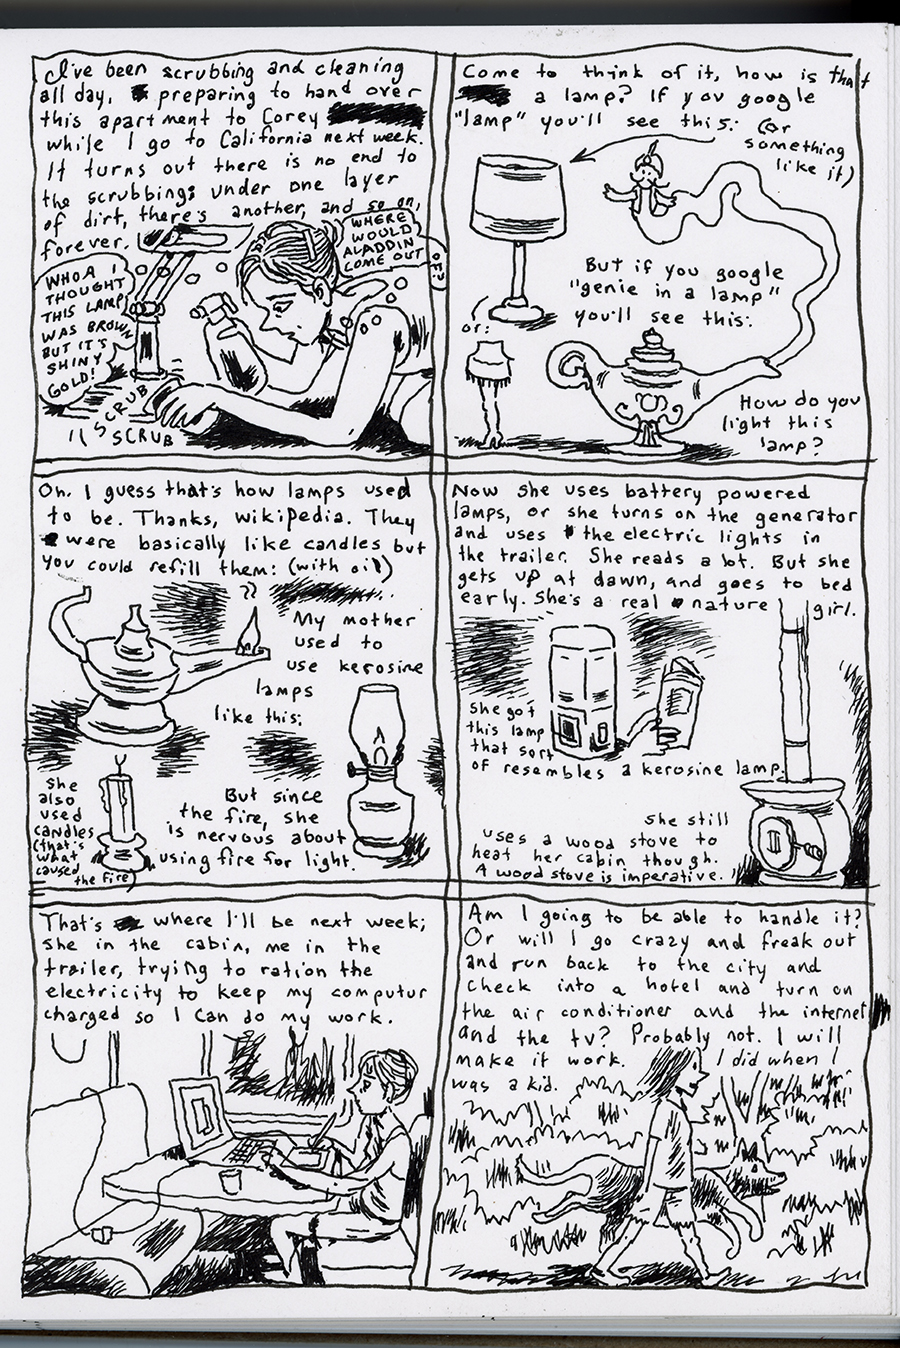 I've been scrubbing and cleaning
all day, preparing to hand over
this apartment to Corey
while I go to California next week.
It turns out there is no end to
the scrubbing; under one layer
of dirt, there's another, and so on,
forever.
WHERE
WOULD
ALADDIN
COME OUT
OF?
WHOA I
THOUGHT
THIS LAMP
WAS BROWN
BUT IT'S
SHINY
GOLD!
SCRUB
SCRUB
Come to think of it, how is that
a lamp? If you google
"lamp" you'll see this: (or
something
like it)
But if you google
"genie in a lamp"
you'll see this:
or:
How do you
light this
lamp?
Oh. I guess that's how lamps used
to be. Thanks, wikipedia. They
were basically like candles but
you could refill them: (with oil)
My mother
used to
use kerosine
lamps
like this:
She
also
used
candles
(that's
what
caused
the fire)
But since
the fire, she
is nervous about
using fire for light.
Now she uses battery powered
lamps, or she turns on the generator
and uses the electric lights in
the trailer. She reads a lot. But she
gets up at dawn, and goes to bed
early. She's a real nature girl.
she got
this lamp
that sort
of resembles a kerosine lamp.
she still
uses a wood stove to
heat her cabin though.
A wood stove is imperative.
That's where I'll be next week;
she in the cabin, me in the
trailer, trying to ration the
electricity to keep my computur
charged so I can do my work.
Am I going to be able to handle it?
Or will I go crazy and freak out
and run back to the city and
check into a hotel and turn on
the air conditioner and the internet
and the tv? Probably not. I will
make it work. I did when I
was a kid.